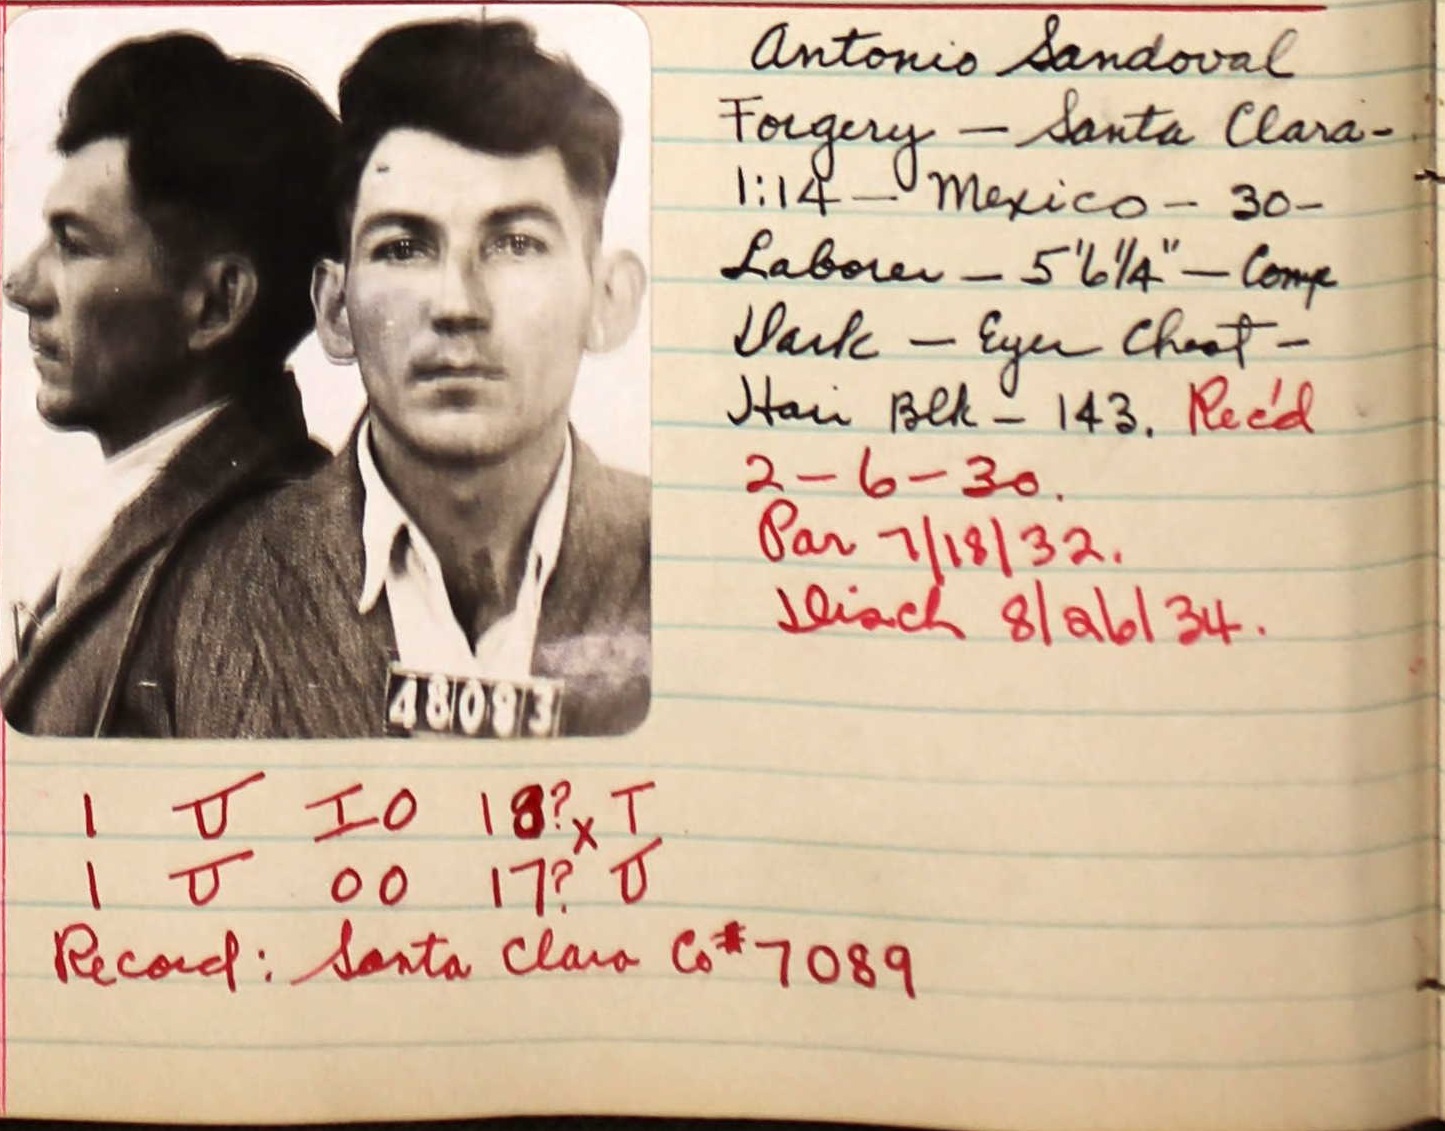 Antonio Sandoval
Forgery — Santa Clara -
1:14 — Mexico - 30 -
Laborer — 5'6 1/4" — Comp
Dark — Eyes Chest -
Hair Blk - 143. Rec'd
2 - 6 - 30.
Par 7/18/32.
Disch 8/26/34.
48083
1 U IO 18? x T
1 U OO 17? U
Record: Santa Clara Co # 7089